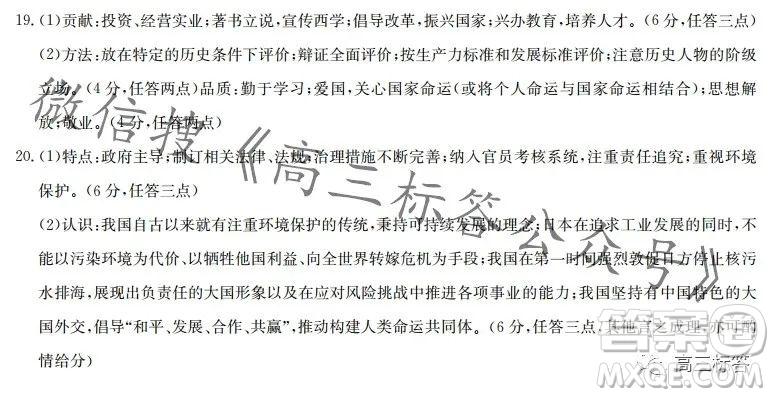 19.(1)贡献:投资、经营实业;著书立说,宣传西学;倡导改革,振兴国家;兴办教育,培养人才。(6分,任答三点)
(2)方法:放在特定的历史条件下评价;辩证全面评价;按生产力标准和发展标准评价;注意历史人物的阶级
立场。(4分,任答两点)品质:勤于学习;爱国,关心国家命运(或将个人命运与国家命运相结合);思想解
放;敬业。(4分,任答两点)
20.(1)特点:政府主导;制订相关法律、法规;治理措施不断完善;纳入官员考核系统,注重责任追究;重视环境
保护。(6分,任答三点)
(2)认识:我国自古以来就有注重环境保护的传统,秉持可持续发展的理念;日本在追求工业发展的同时,不
能以污染环境为代价、以牺牲他国利益、向全世界转嫁危机为手段;我国在第一时间强烈敦促日方停止核污
水排海,展现出负责任的大国形象以及在应对风险挑战中推进各项事业的能力;我国坚持有中国特色的大
国外交,倡导“和平、发展、合作、共赢”,推动构建人类命运共同体。(6分,任答三点,其他言之成理,亦可酌
情给分)
微信搜《高三标答公众号》
答案圈
MXQE.COM
高三标答